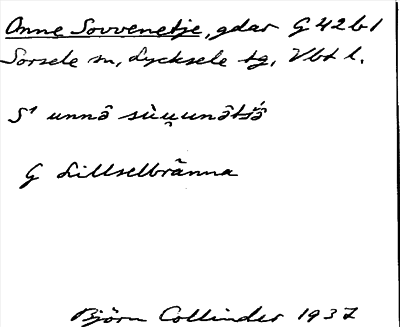 Onne Sovvenetje, gdar G 42 b 1
Sorsele sn, Lycksele tg, Vbt l.
S¹ unnô sùu̯unôtśô
G Lillselbränna
Björn Collinder 1937